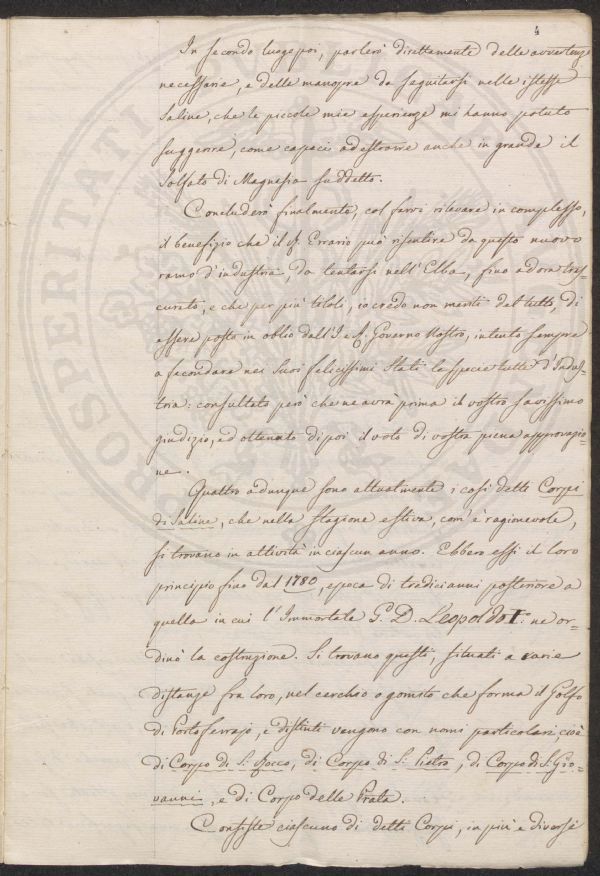 4
In secondo luogo poi, parlerò direttamente delle avvertenze
necessarie, e delle manopre da seguitarsi nelle istesse
Saline, che le piccole mie esperienze mi hanno potuto
suggerire, come capaci ad estrarre anche in grande il
Solfato di Magnesia suddetto.
Concluderò finalmente, col farvi rilevare in complesso,
il benefizio che il R. Erario può risentire da questo nuovo
ramo d'industria, da tentarsi nell'Elba, fino ad ora tras-
curato, e che per più titoli, io credo non meriti del tutto, di
essere posto in oblio dall'I. e R. Governo Nostro, intento sempre
a fecondare nei Suoi felicissimi Stati la specie tutte d'Indus-
tria: consultato però che ne avrà prima il vostro savissimo
giudizio, ed ottenuto di poi il voto di vostra piena approvazio-
ne.
Quattro adunque sono attualmente i così detti Corpi
di Saline, che nella stagione estiva, com'è ragionevole,
si trovano in attività in ciascun anno. Ebbero essi il loro
principio fino dal 1780, epoca di tredici anni posteriore a
quella in cui l'Immortale G. D. Leopoldo I.º ne or-
dinò la costruzione. Si trovano questi, situati a varie
distanze fra loro, nel cerchio o gomito che forma il Golfo
di Portoferrajo, e distinti vengono con nomi particolari, cioè
di Corpo di S. Rocco, di Corpo di S. Pietro, di Corpo di S. Gio-
vanni, e di Corpo delle Prata.
Consiste ciascuno di detti Corpi, in più e diverse
PROSPERITATI